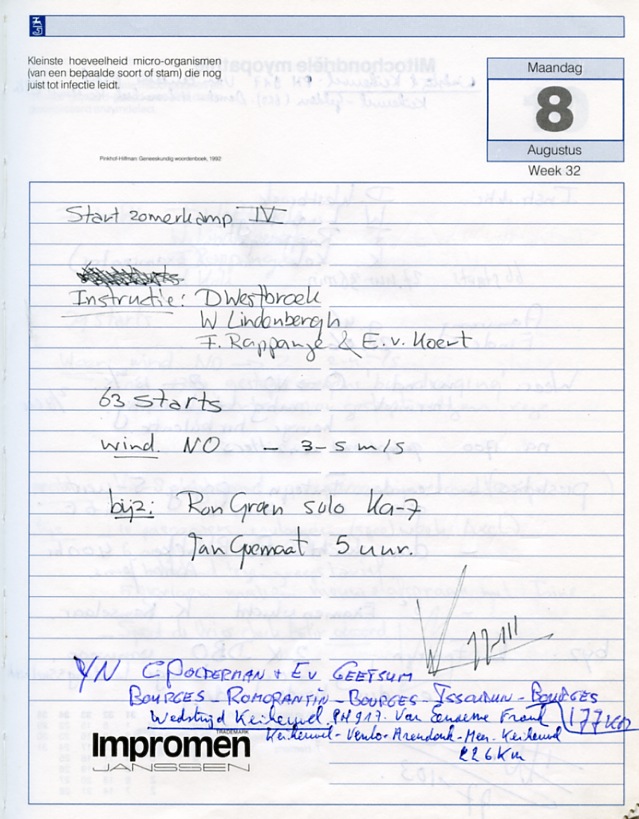 Kleinste hoeveelheid micro-organismen
(van een bepaalde soort of stam) die nog
juist tot infectie leidt.
Pinkhof-Hilfman: Geneeskundig woordenboek, 1992
Maandag
8
Augustus
Week 32
Start zomerkamp IV
Instructie: D Westbroek
W Lindenbergh
F. Rappange & E. v. Hoert
63 starts
wind. NO - 3-5 m/s
bijz: Ron Groen solo Ka-7
Jan Goemaat 5 uur.
YN C POLDERMAN + E v GEETSUM
BOURGES - ROMORANTIN - BOURGES - ISSOUDUN - BOURGES
177 KM
Wedstrijd Keiheuvel PH 917. Van Frank
Keiheuvel - Venlo - Arendonk - Keiheuvel
226 Km
TRADEMARK
Impromen
JANSSEN